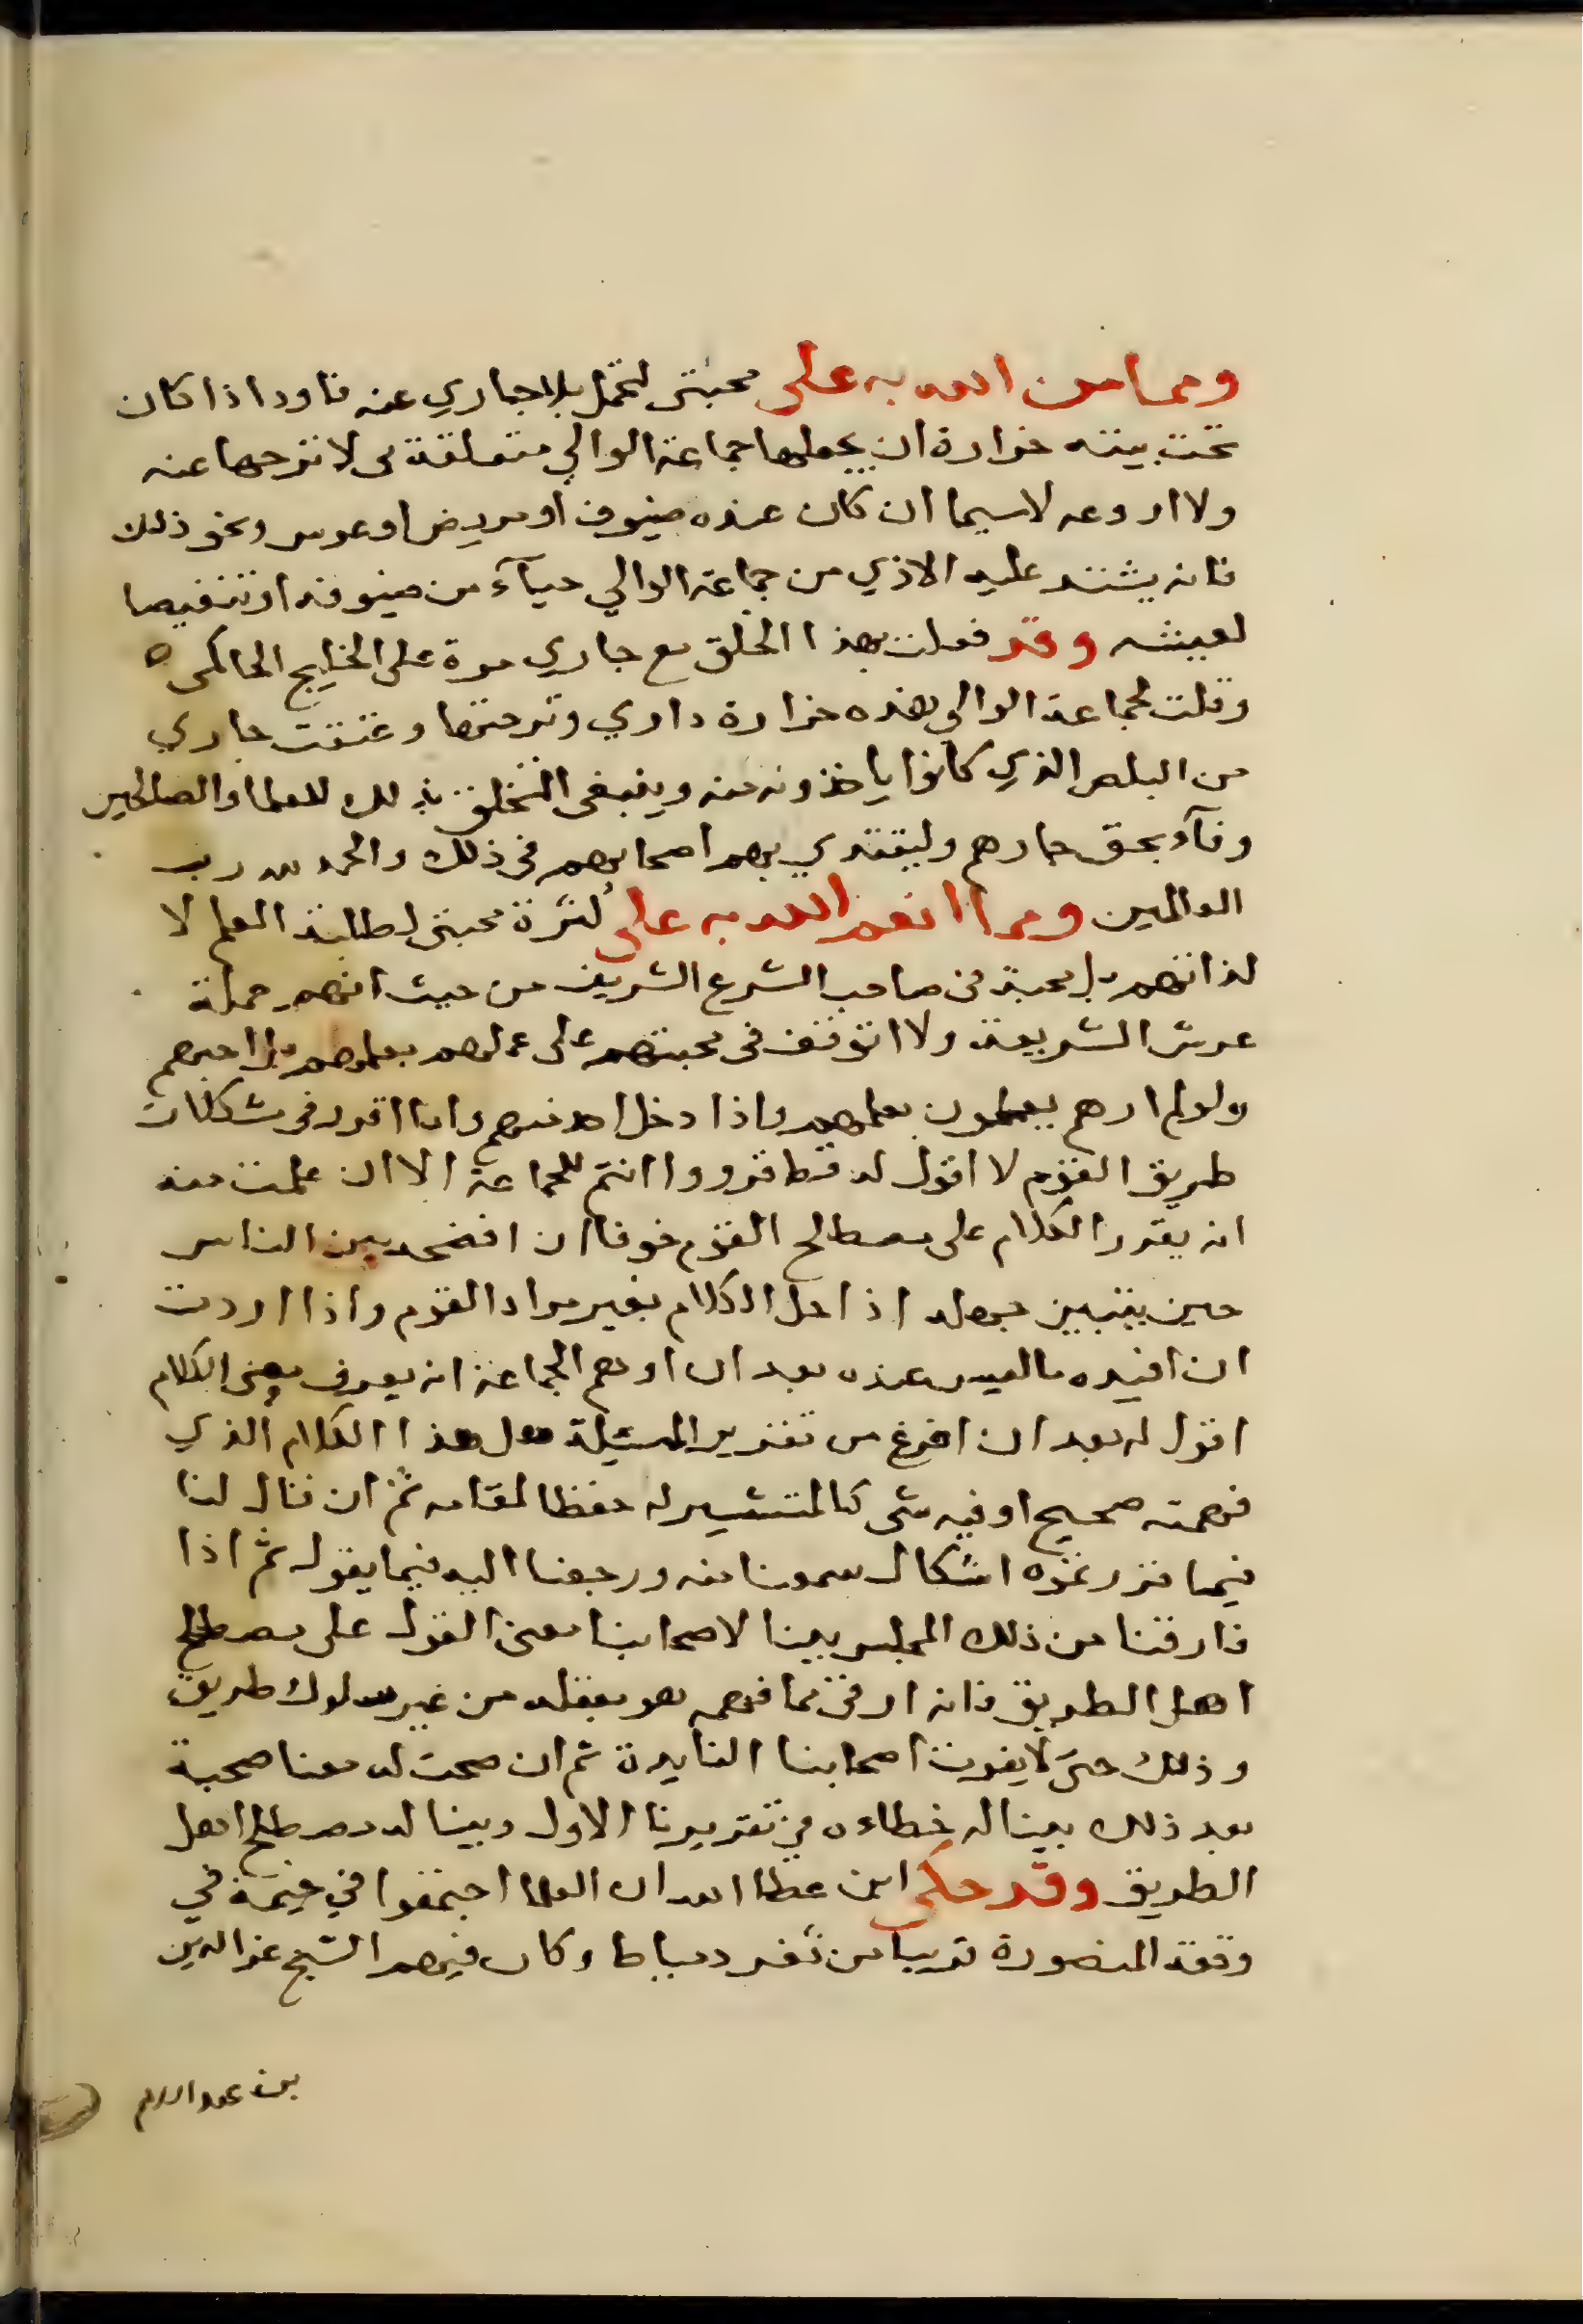 ومما من الله به على محبتى لتحمل بلاء جاري عنه فاود اذا كان
تحت بيته خرارة ان يجعلها جماعة الوالي متعلقة بى لانزحها عنه
ولا اروعه لاسيما ان كان عنده ضيوف او مريض او عرس ونحو ذلك
فانه يشتد عليه الاذي من جماعة الوالي حيآء من ضيوفه او تنغيصا
لعيشه وقد فعلت بهذا الخلق مع جاري مرة على الخليج الحاكمى
وقلت لجماعة الوالي هذه خرارة داري ونزحتها وعتقت جاري
من البلص الذي كانوا ياخذونه منه وينبغى التخلق بذلك للعلما والصالحين
وفآء بحق جارهم وليقتدي بهم اصحابهم فى ذلك والحمد لله رب
العالمين ومما انعم الله به على كثرة محبتى لطلبة العلم لا
لذاتهم بل محبة فى صاحب الشرع الشريف من حيث انهم حملة
عرش الشريعة ولا اتوقف فى محبتهم على عملهم بعلمهم بل احبهم
ولو لم ارهم يعملون بعلمهم واذا دخل احد منهم وانا اقرر فى مشكلات
طريق القوم لا اقول له قط قرروا انتم للجماعة الا ان علمت منه
انه يقرر الكلام على مصطلح القوم خوفا ان افضحه بين الناس
حين يتبين جهله اذا حل الكلام بغير مراد القوم واذا اردت
ان افيده ما ليس عنده بعد ان اوهم الجماعة انه يعرف معنى الكلام
اقول له بعد ان افرغ من تقرير المسئلة هل هذا الكلام الذي
فهمته صحيح او فيه شى كالمستشير له حفظا لمقامه ثم ان قال لنا
فيما قررتموه اشكال سمعنا منه ورجعنا اليه فيما يقول ثم اذا
فارقنا من ذلك المجلس بينا لاصحابنا معنى القول على مصطلح
اهل الطريق فانه ارقى مما فهمه هو بعقله من غير سلوك طريق
وذلك حتى لا يفوت اصحابنا الفايدة ثم ان صحت له معنا صحبة
بعد ذلك بينا له خطاءه في تقريرنا الاول وبينا له مصطلح اهل
الطريق وقد حكى ابن عطا الله ان العلما اجتمعوا في خيمة في
وقعة المنصورة قريبا من ثغر دمياط وكان فيهم الشيخ عز الدين
بن عبد السلام